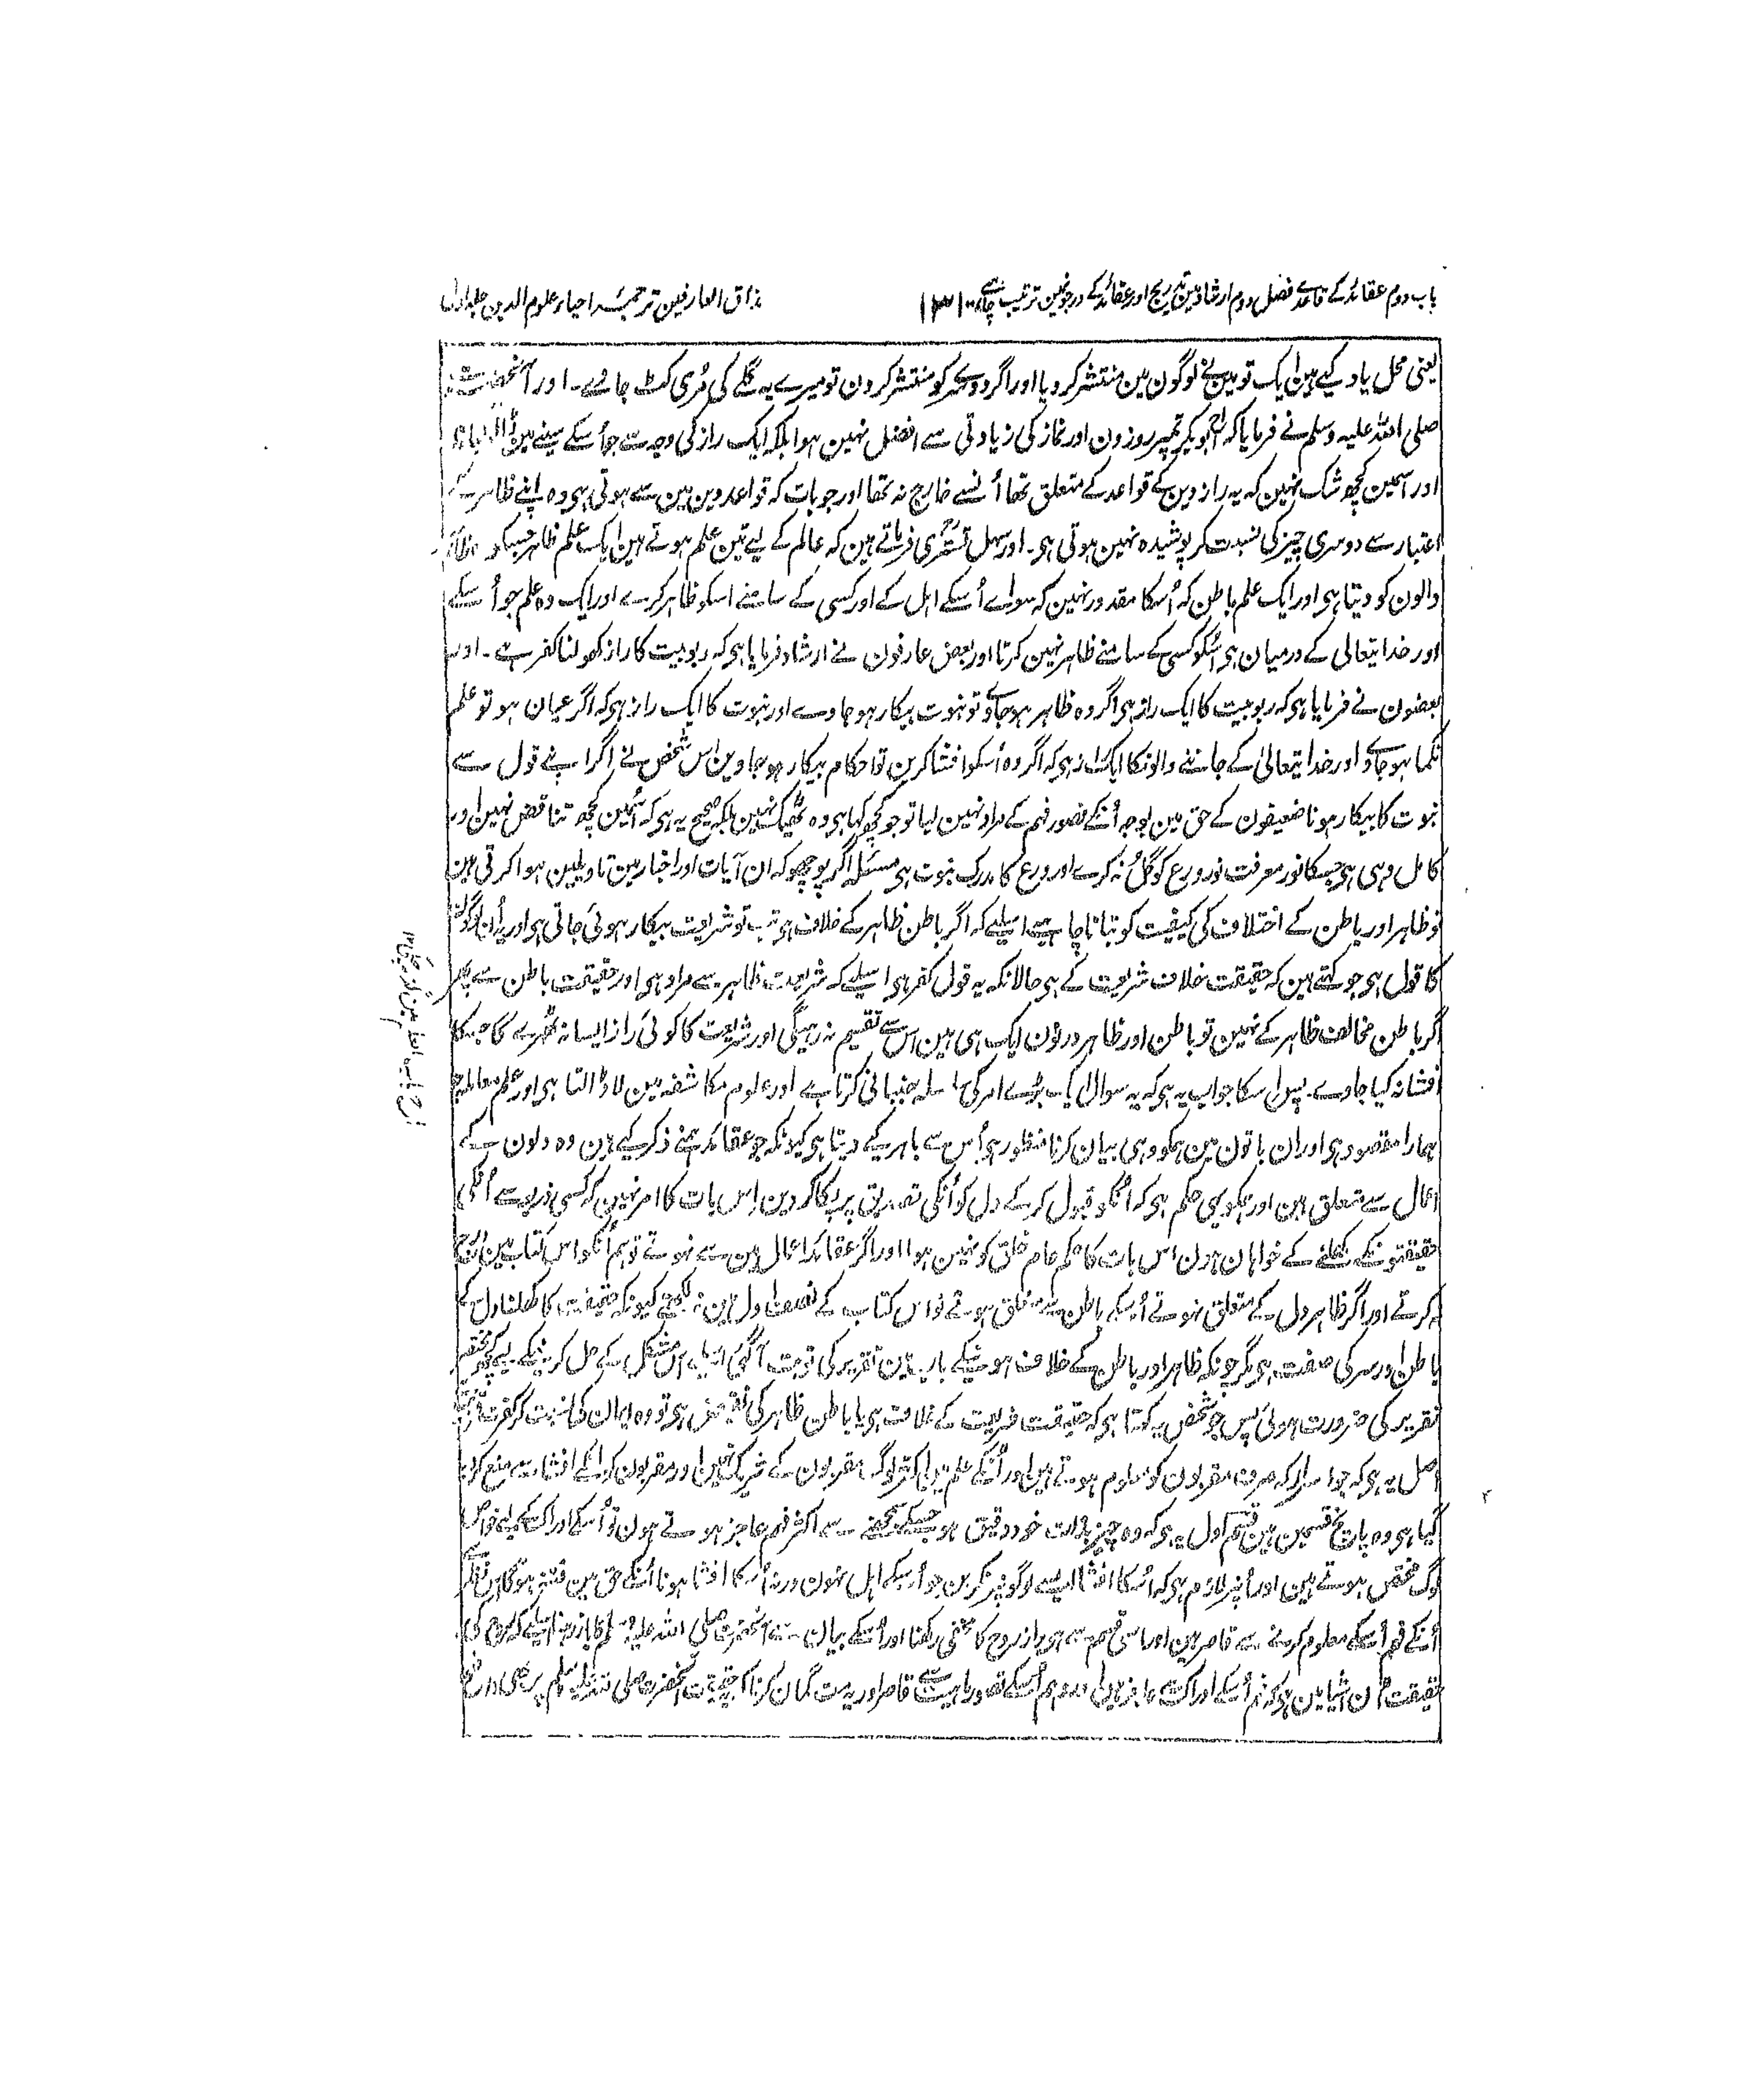 باب دوم عقائد کے قاعدے فصل دوم ارشاد مین تدریج اور عقائد کے درجونمین ترتیب چاہئے
۱۳۱
مذاق العارفین ترجمۂ احیاء علوم الدین جلد اول
یعنی محل یاد کیے ہین ایک تو مین نے لوگون مین منتشر کر دیا اور اگر دوسرے کو منتشر کرون تو میرے یہ گلے کی نری کٹ جائے۔ اور آنحضرت
صلی اللہ علیہ وسلم نے فرمایا کہ ابو بکر تمپر روزون اور نماز کی زیادتی سے افضل نہین ہوا بلکہ ایک راز کی وجہ سے جو اُسکے سینے مین
اور اسمین کچھ شک نہین کہ یہ راز دین کے قواعد کے متعلق تھا اُنسے خارج نہ تھا اور جو بات کہ قواعد دین مین سے ہوتی ہی وہ اپنے ظاہر کے
اعتبار سے دوسری چیز کی نسبت کر پوشیدہ نہین ہوتی ہی۔ اور سہل تستری فرماتے ہین کہ عالم کے لیے تین علم ہوتے ہین ایک علم ظاہر جسکو
والون کو دیتا ہی اور ایک علم باطن کہ اُسکا مقدور نہین کہ سواے اُسکے اہل کے اور کسی کے سامنے اسکو ظاہر کرے اور ایک وہ علم جو اُسکے
اور خدا یتعالی کے درمیان ہی اُسکو کسی کے سامنے ظاہر نہین کرتا اور بعض عارفون نے ارشاد فرمایا ہی کہ ربوبیت کا راز کھولنا کفر ہے۔ اور
بعضون نے فرمایا ہی کہ ربوبیت کا ایک راز ہی اگر وہ ظاہر ہو جاوے تو نبوت بیکار ہو جاوے اور نبوت کا ایک راز ہی کہ اگر عیان ہو تو علم
نکما ہو جاوے اور خدا یتعالیٰ کے جاننے والونکا ایک راز ہی کہ اگر وہ اُسکو افشا کرین تو احکام بیکار ہو جاوین اس شخص نے اگر اپنے قول سے
نبوت کا بیکار ہونا ضعیفون کے حق مین بوجہ اُنکے قصور فہم کے مراد نہین لیا تو جو کچھ کہا ہی وہ ٹھیک نہین بلکہ صحیح یہ ہی کہ اُسمین کچھ تناقض نہین اور
کامل وہی ہی جسکا نور معرفت نور ورع کو گل نہ کرے اور ورع کا مدرک نبوت ہی مسئلہ اگر پوچھو کہ ان آیات اور اخبار مین تاویلین ہوا کرتی ہین
تو ظاہر اور باطن کے اختلاف کی کیفیت کو بتانا چاہیے اسلیے کہ اگر باطن ظاہر کے خلاف ہی تب تو شریعت بیکار ہوئی جاتی ہی اور یہ اُن لوگون
کا قول ہی جو کہتے ہین کہ حقیقت خلاف شریعت کے ہی حالانکہ یہ قول کفر ہی اسلیے کہ شریعت ظاہر سے مراد ہی اور حقیقت باطن سے پھر
اگر باطن مخالف ظاہر کے نہین تو باطن اور ظاہر دونون ایک ہی ہین اس سے تقسیم نہ رہیگی اور شریعت کا کوئی راز ایسا نہ ٹھہرے گا جسکا
افشا نہ کیا جاوے۔ پس اسکا جواب یہ ہی کہ یہ سوال ایک بڑے امر کی سلسلہ جنبانی کرتا ہے اور علوم مکاشفہ مین لا ڈالتا ہی اور علم معاملہ جو
ہمارا مقصود ہی اور ان باتون مین ہمکو وہی بیان کرنا منظور ہی اُس سے باہر کیے دیتا ہی کیونکہ جو عقائد ہمنے ذکر کیے ہین وہ دلون کے
اعمال سے متعلق ہین اور ہمکو یہی حکم ہی کہ اُنکو قبول کر کے دل کو اُنکی تصدیق پر پکا کر دین اِس بات کا امر نہین کہ کسی ذریعہ سے اُنکی
حقیقتون کے کھلنے کے خواہان ہون اس بات کا حکم عام خلق کو نہین ہوا اور اگر عقائد اعمال مین سے نہوتے تو ہم اُنکو اس کتاب مین درج
نہ کرتے اور اگر ظاہر دل کے متعلق نہوتے اُسکے باطن سے متعلق ہوتے تو اس کتاب کے نصف اول مین نہ لکھتے کیونکہ حقیقت کا کھلنا دل کے
باطن اور سر کی صفت ہی مگر چونکہ ظاہر اور باطن کے خلاف ہونیکے باب مین تقریر کی نوبت آگئی اس مشکل کے حل کرنیکے لیے کچھ مختصر
تقریر کی ضرورت ہوئی پس جو شخص یہ کہتا ہی کہ حقیقت شریعت کے خلاف ہی یا باطن ظاہر کی نقیض ہی تو وہ ایمان کی نسبت کر کفر سے
اصل یہ ہی کہ جو اسرار کہ صرف مقربون کو معلوم ہوتے ہین اور اُنکے علم مین اکثر لوگ مقربون کے شریک نہین اور مقربون کو اُنکے افشا سے منع کر دیا
گیا ہی وہ پانچ قسمین ہین قسم اول یہ ہی کہ وہ چیز بذات خود دقیق ہو جسکے سمجھنے سے اکثر فہم عاجز ہوتے ہون تو اُسکے ادراک کے لیے خواص
لوگ مختص ہوتے ہین اور اُنپر لازم ہی کہ اُسکا افشا ایسے لوگونپر نکرین جو اُسکے اہل نہون ورنہ اُسکا افشا ہونا اُنکے حق مین فتنہ ہوگا
اُنکے فہم اُسکے معلوم کرنے سے قاصر ہین اور اسی قسم سے ہی راز روح کا مخفی رکھنا اور اُسکے بیان سے آنحضرت صلی اللہ علیہ وسلم کا باز رہنا اسلیے کہ روح کی
حقیقت اُن اشیا مین ہی کہ فہم اُسکے ادراک سے عاجز ہین اور وہم اُسکے تصور ماہیت سے قاصر اور یہ مت گمان کرنا کہ حقیقت آنحضرت صلی اللہ علیہ وسلم پر بھی